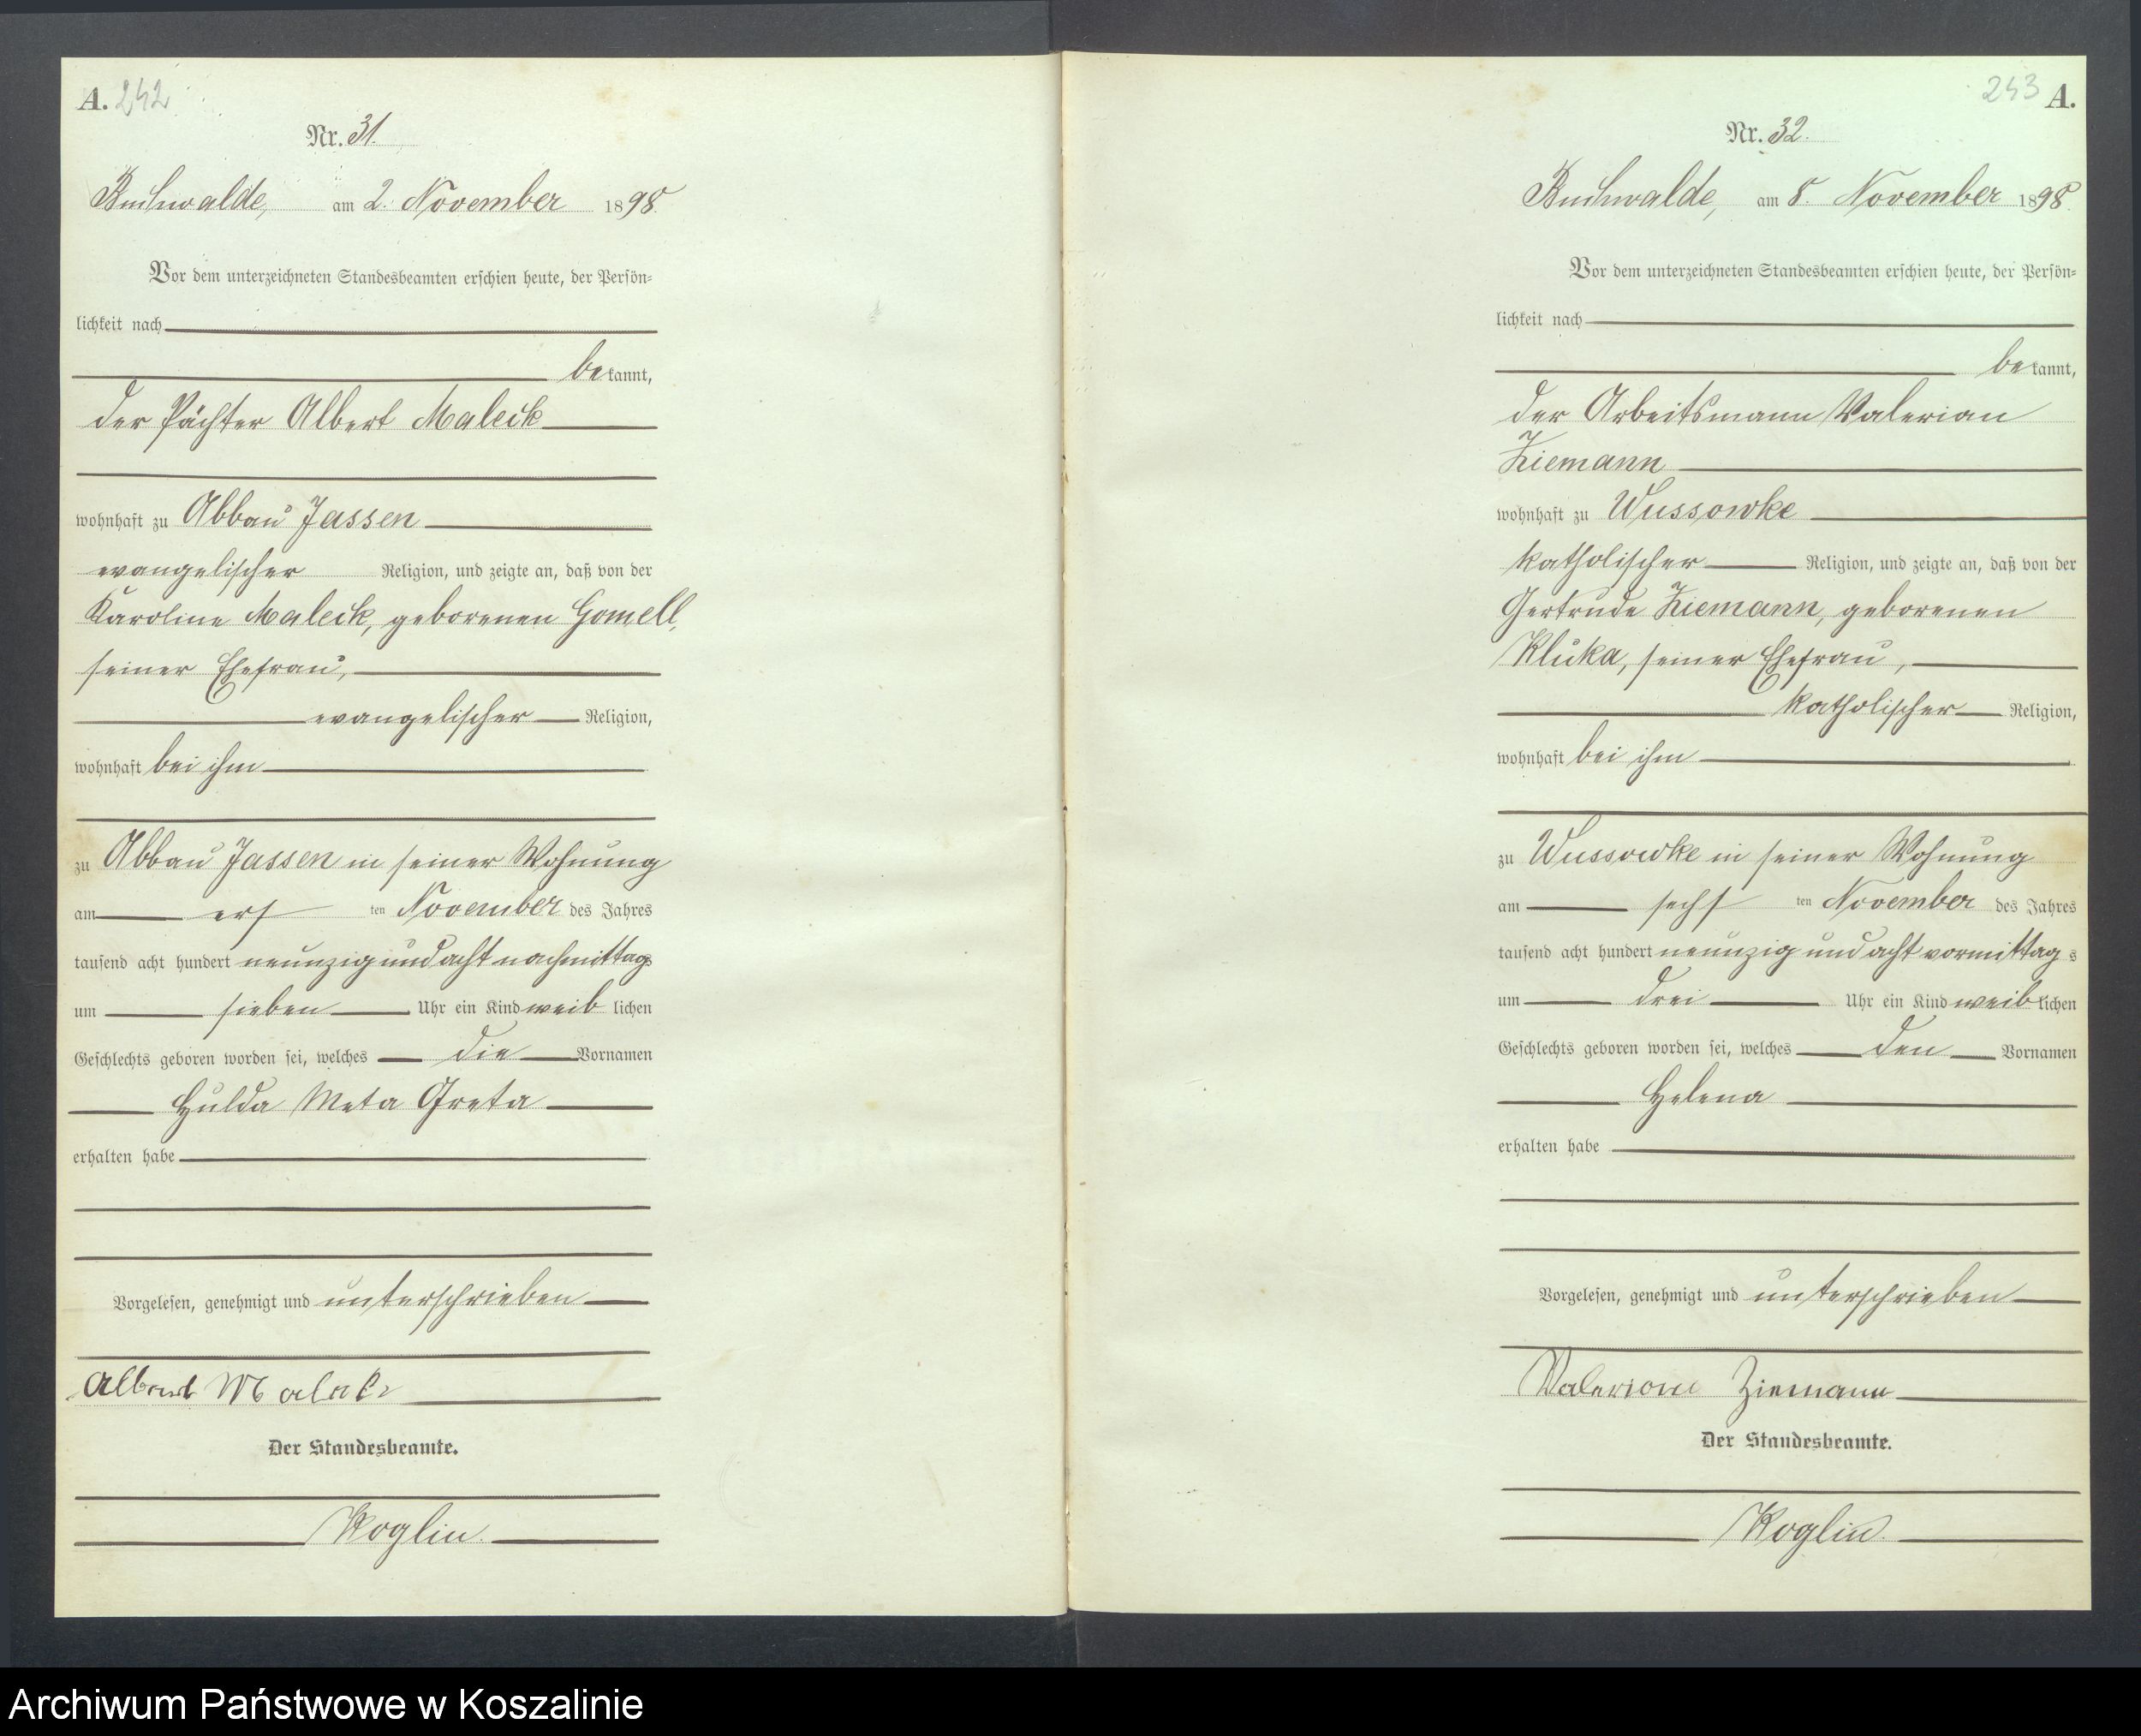 A. 242
Nr. 31.
Buchwalde, am 2. November 1898.
Vor dem unterzeichneten Standesbeamten erschien heute, der Persön-
lichkeit nach
bekannt,
der Pächter Albert Maleck
wohnhaft zu Abbau Jassen
evangelischer Religion, und zeigte an, daß von der
Karoline Maleck, geborenen Gomell,
seiner Ehefrau,
evangelischer Religion,
wohnhaft bei ihm
zu Abbau Jassen in seiner Wohnung
am ersten November des Jahres
tausend acht hundert neunzig und acht nachmittags
um sieben Uhr ein Kind weiblichen
Geschlechts geboren worden sei, welches die Vornamen
Hulda Meta Greta
erhalten habe
Vorgelesen, genehmigt und unterschrieben
Albert Maleck
Der Standesbeamte.
Koglin.
243 A.
Nr. 32.
Buchwalde, am 8. November 1898.
Vor dem unterzeichneten Standesbeamten erschien heute, der Persön-
lichkeit nach
bekannt,
der Arbeitsmann Valerian
Ziemann
wohnhaft zu Wussowke
katholischer Religion, und zeigte an, daß von der
Gertrude Ziemann, geborenen
Kluka, seiner Ehefrau,
katholischer Religion,
wohnhaft bei ihm
zu Wussowke in seiner Wohnung
am sechsten November des Jahres
tausend acht hundert neunzig und acht vormittags
um drei Uhr ein Kind weiblichen
Geschlechts geboren worden sei, welches den Vornamen
Helena
erhalten habe
Vorgelesen, genehmigt und unterschrieben
Valerian Ziemann
Der Standesbeamte.
Koglin.
Archiwum Państwowe w Koszalinie